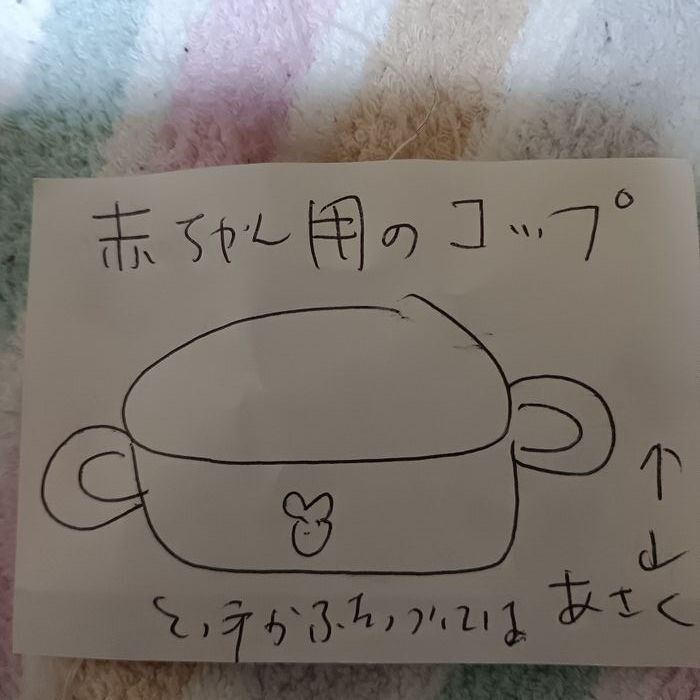 赤ちゃん用のコップ
とっ手がふたつついてるよ
あさく